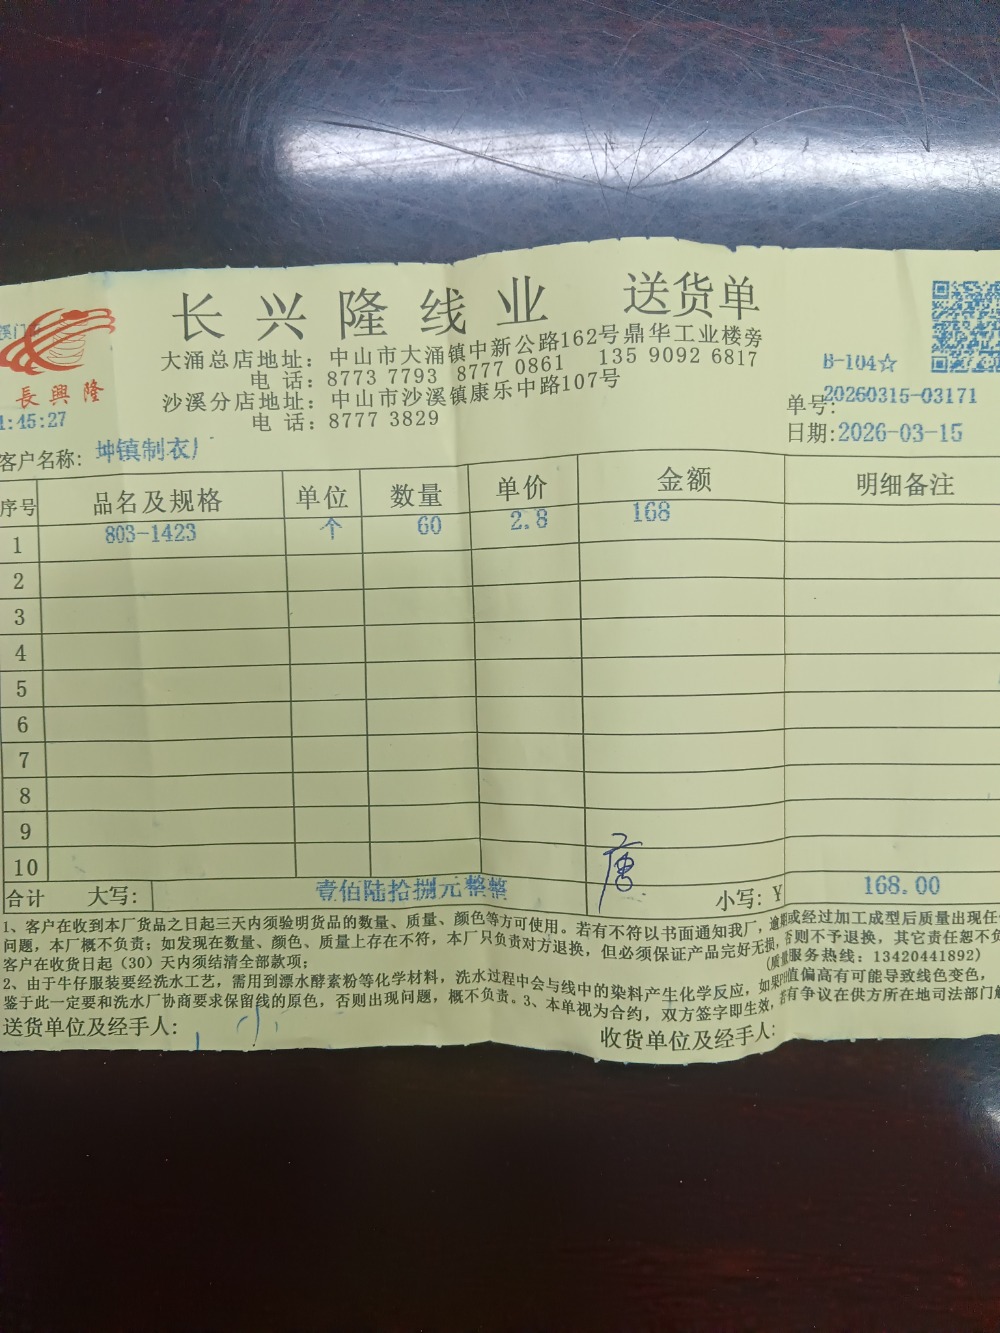 长兴隆线业 送货单
長興隆
大涌总店地址：中山市大涌镇中新公路162号鼎华工业楼旁
电 话：8773 7793 8777 0861 135 9092 6817
沙溪分店地址：中山市沙溪镇康乐中路107号
电 话：8777 3829
B-104☆
单号:20260315-03171
日期:2026-03-15
:45:27
客户名称: 坤镇制衣厂
序号 品名及规格 单位 数量 单价 金额 明细备注
1 803-1423 个 60 2.8 168
2
3
4
5
6
7
8
9
10
唐
合计 大写: 壹佰陆拾捌元整整 小写: ¥ 168.00
1、客户在收到本厂货品之日起三天内须验明货品的数量、质量、颜色等方可使用。若有不符以书面通知我厂，逾期或经过加工成型后质量出现任
问题，本厂概不负责；如发现在数量、颜色、质量上存在不符，本厂只负责对方退换，但必须保证产品完好无损，否则不予退换，其它责任恕不负
客户在收货日起（30）天内须结清全部款项； (质量服务热线：13420441892)
2、由于牛仔服装要经洗水工艺，需用到漂水酵素粉等化学材料，洗水过程中会与线中的染料产生化学反应，如果PH值偏高有可能导致线色变色，
鉴于此一定要和洗水厂协商要求保留线的原色，否则出现问题，概不负责。3、本单视为合约，双方签字即生效，若有争议在供方所在地司法部门解
送货单位及经手人:
收货单位及经手人: